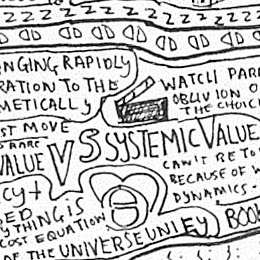 ZZZZZZZZZZZ
NGING RAPIDLY
RATION TO THE
METICALLY
WATCH PAR
OBLIVION O
THE CHOIC
ST MOVE
RARE
VALUE V S SYSTEMIC VALUE
CAN'T BE TO
BECAUSE OF W
DYNAMICS -
CY +
ED
Y THING IS
COST EQUATION
OF THE UNIVERSE UNLEY
BOO